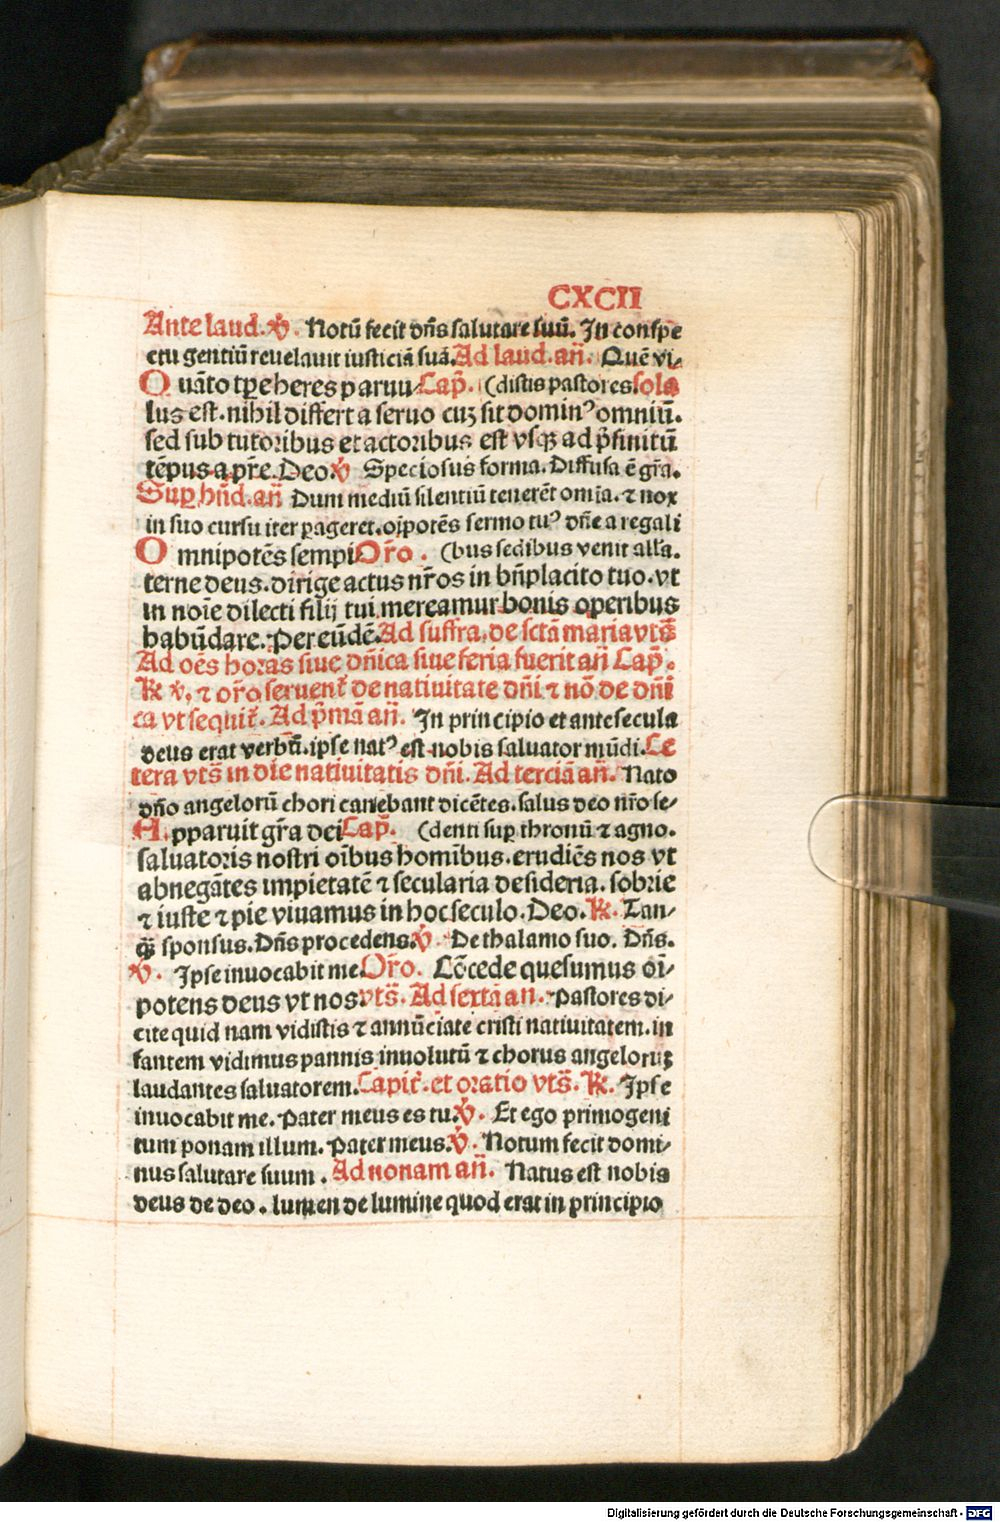 CXCII
Ante laud. ꝟ. Notū fecit dn̄s salutare suū. In conspe
ctu gentiū reuelauit iusticiā suā. Ad laud. an̄. Quē vi⸗
Quāto tꝑe heres paruu⸗ Cap̄. (distis pastores. sola
lus est. nihil differt a seruo cuꝫ sit dominꝰ omniū.
sed sub tutoribus et actoribus est vsqꝫ ad p̄finitū
tēpus a pr̄e. Deo. ꝟ Speciosus forma. Diffusa ē gr̄a.
Suꝑ bn̄d. an̄ Dum mediū silentiū tenerēt om̄ia. ⁊ nox
in suo cursu iter ꝑageret. oīpotēs sermo tuꝰ dn̄e a regali
Omnipotēs sempi Or̄o. (bus sedibus venit all'a.
terne deus. dirige actus nr̄os in bn̄placito tuo. vt
in noīe dilecti filij tui mereamur bonis operibus
habūdare. Per eūdē. Ad suffra. de sctā maria vts̄
Ad oēs horas siue dn̄ica siue feria fuerit an̄ Cap̄.
℟ ꝟ. ⁊ or̄o seruent̄ de natiuitate dn̄i ⁊ nō de dn̄i
ca vt sequit̄. Ad p̄mā an̄. In principio et ante secula
deus erat verbū. ipse natꝰ est nobis saluator mūdi. Ce
tera vts̄ in die natiuitatis dn̄i. Ad terciā an̄. Nato
dn̄o angelorū chori canebant dicētes. salus deo nr̄o se⸗
Apparuit gr̄a dei Cap̄. (denti suꝑ thronū ⁊ agno.
saluatoris nostri oībus homībus. erudiēs nos vt
abnegātes impietatē ⁊ secularia desideria. sobrie
⁊ iuste ⁊ pie viuamus in hoc seculo. Deo. ℟. Tan⸗
qꝫ̄ sponsus. Dn̄s procedens. ꝟ. De thalamo suo. Dn̄s.
ꝟ. Ipse inuocabit me. Or̄o. Cōcede quesumus oī⸗
potens deus vt nos. vts̄. Ad sextā an. Pastores di⸗
cite quid nam vidistis ⁊ annūciate cristi natiuitatem. in
fantem vidimus pannis inuolutū ⁊ chorus angeloruꝫ
laudantes saluatorem. Capit̄. et oratio vts̄. ℟. Ipse
inuocabit me. Pater meus es tu. ꝟ. Et ego primogeni
tum ponam illum. Pater meus. ꝟ. Notum fecit domi⸗
nus salutare suum. Ad nonam an̄. Natus est nobis
deus de deo. lumen de lumine quod erat in principio
Digitalisierung gefördert durch die Deutsche Forschungsgemeinschaft - DFG